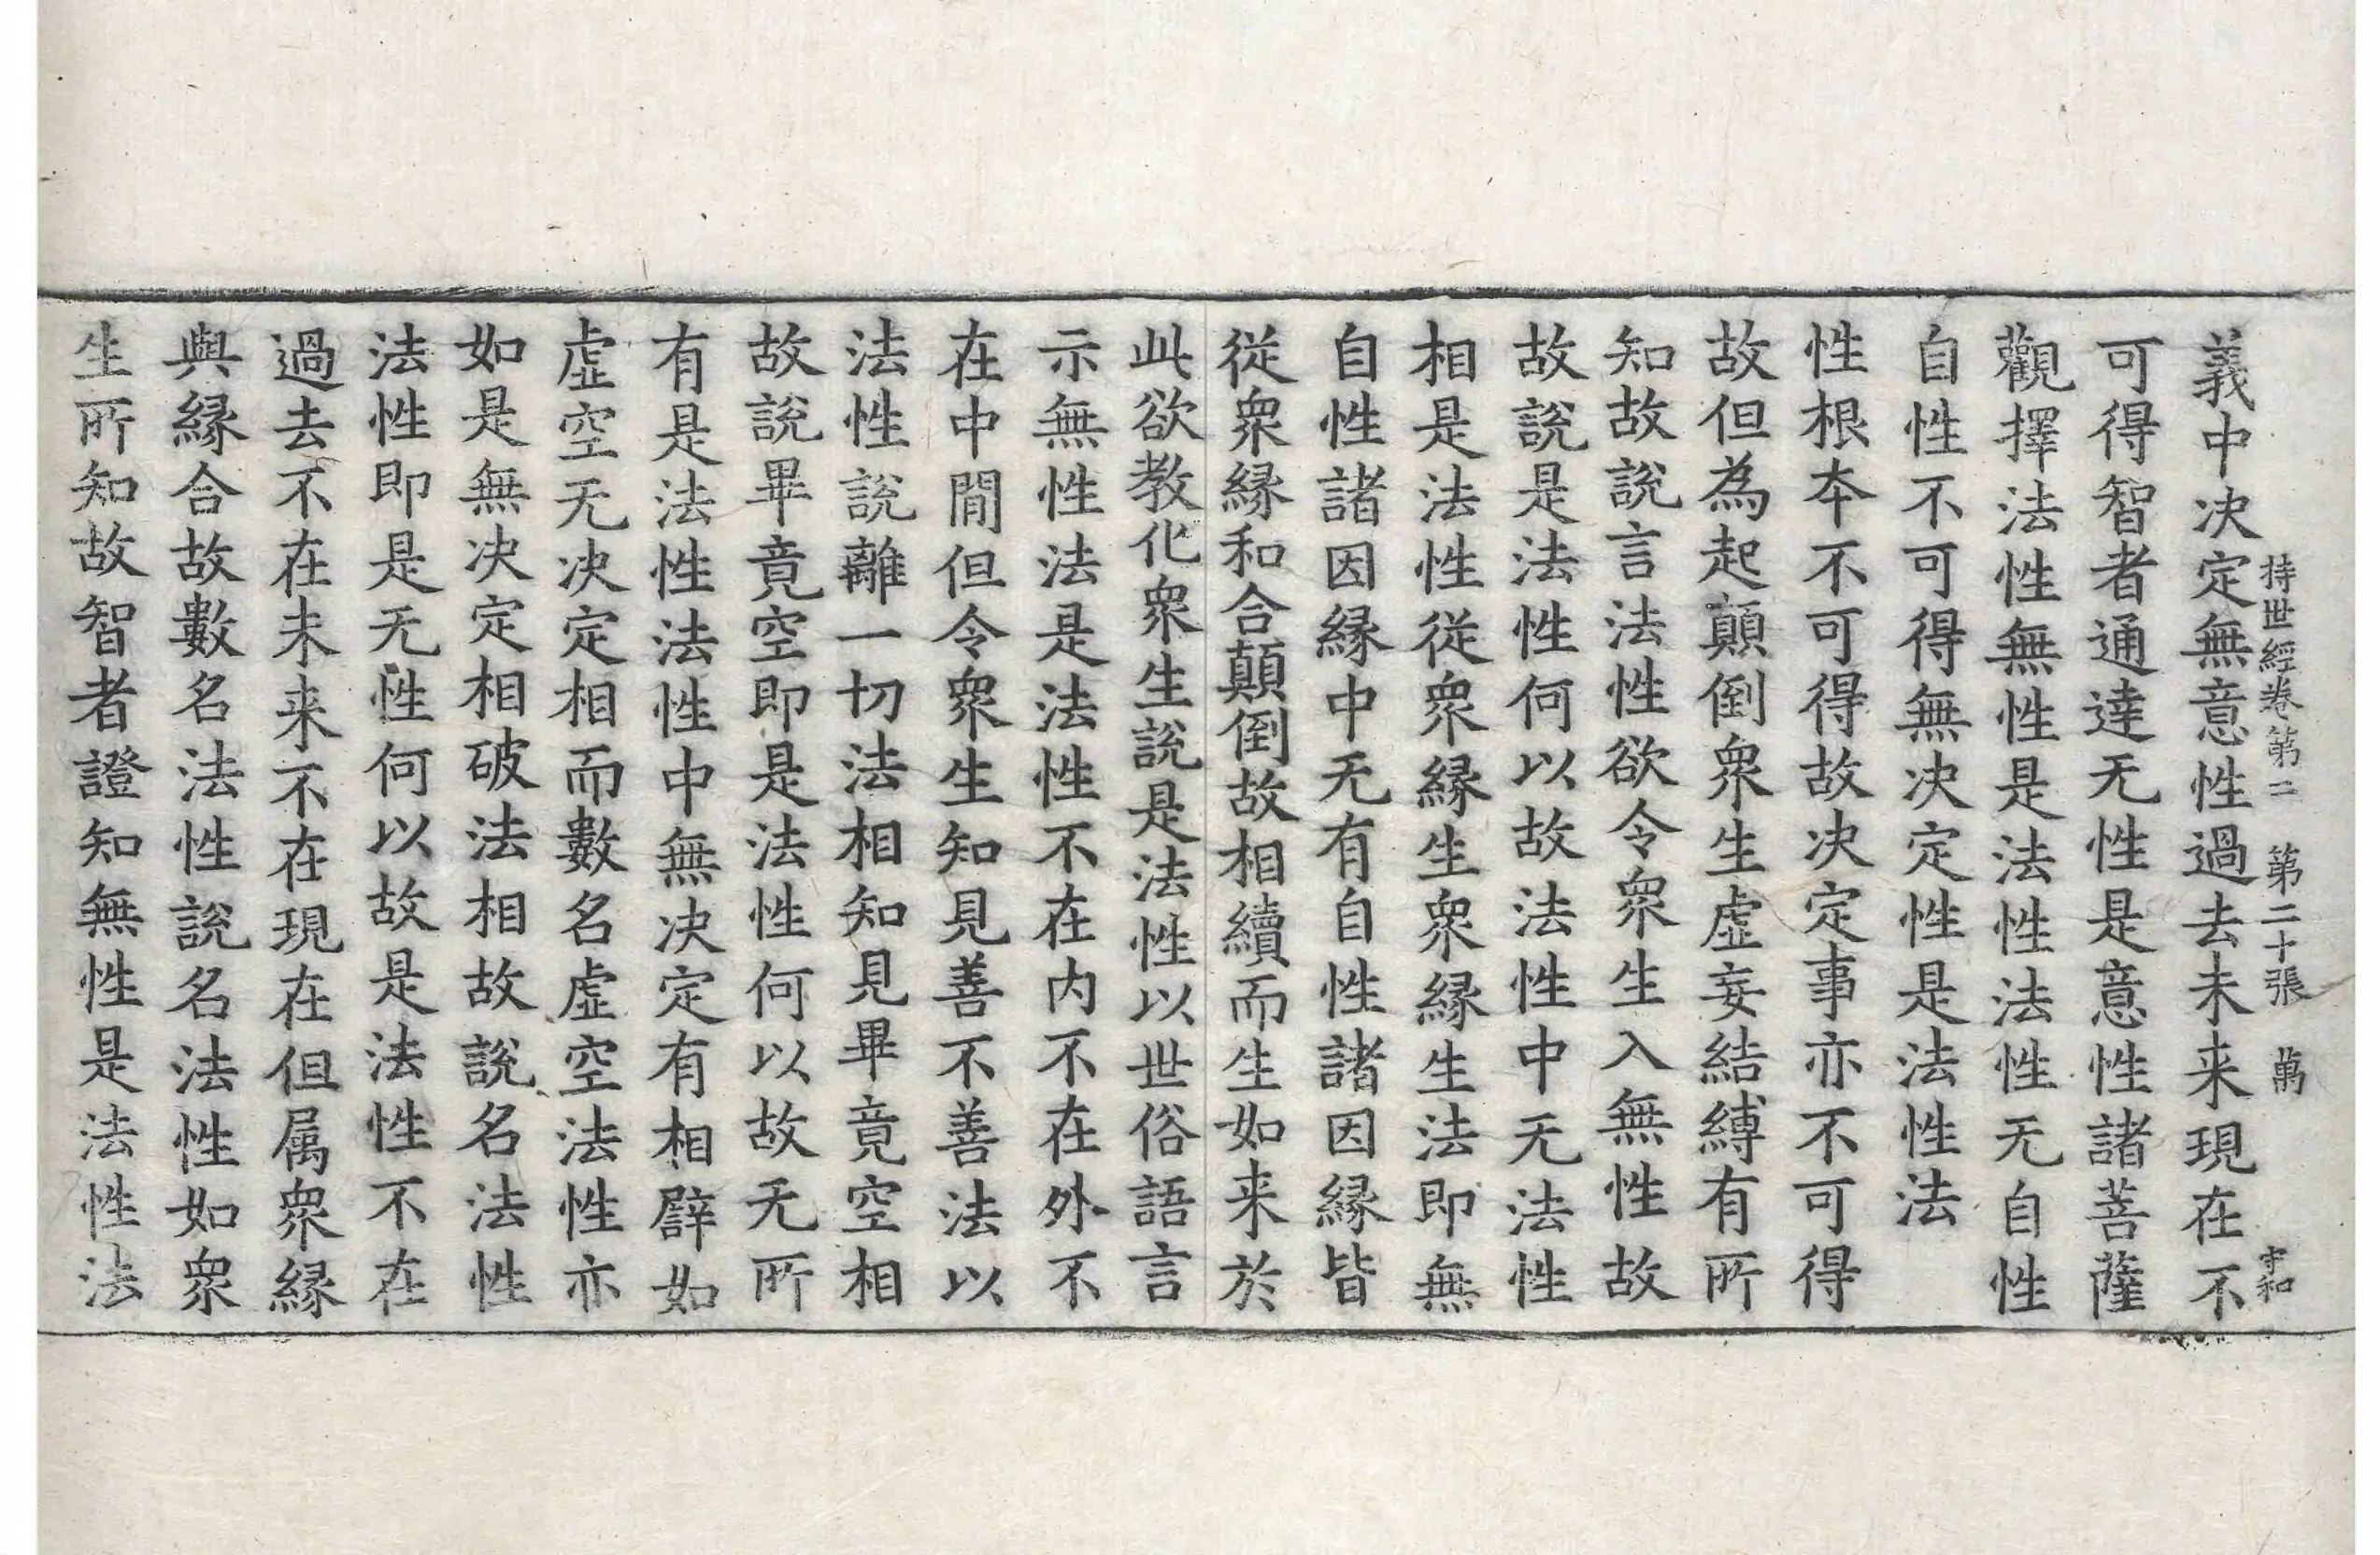 持世經卷第二 第二十張 萬 守和
義中決定無意性過去未来現在不
可得智者通達无性是意性諸菩薩
觀擇法性無性是法性法性无自性
自性不可得無决定性是法性法
性根本不可得故决定事亦不可得
故但為起顛倒衆生虛妄結縛有所
知故說言法性欲令衆生入無性故
故說是法性何以故法性中无法性
相是法性從衆縁生衆縁生法即無
自性諸因縁中无有自性諸因縁皆
從衆縁和合顛倒故相續而生如来於
此欲教化衆生說是法性以世俗語言
示無性法是法性不在内不在外不
在中間但令衆生知見善不善法以
法性說離一切法相知見畢竟空相
故說畢竟空即是法性何以故无所
有是法性法性中無决定有相譬如
虛空无决定相而數名虛空法性亦
如是無决定相破法相故說名法性
法性即是无性何以故是法性不在
過去不在未来不在現在但属衆縁
與縁合故數名法性說名法性如衆
生所知故智者證知無性是法性法